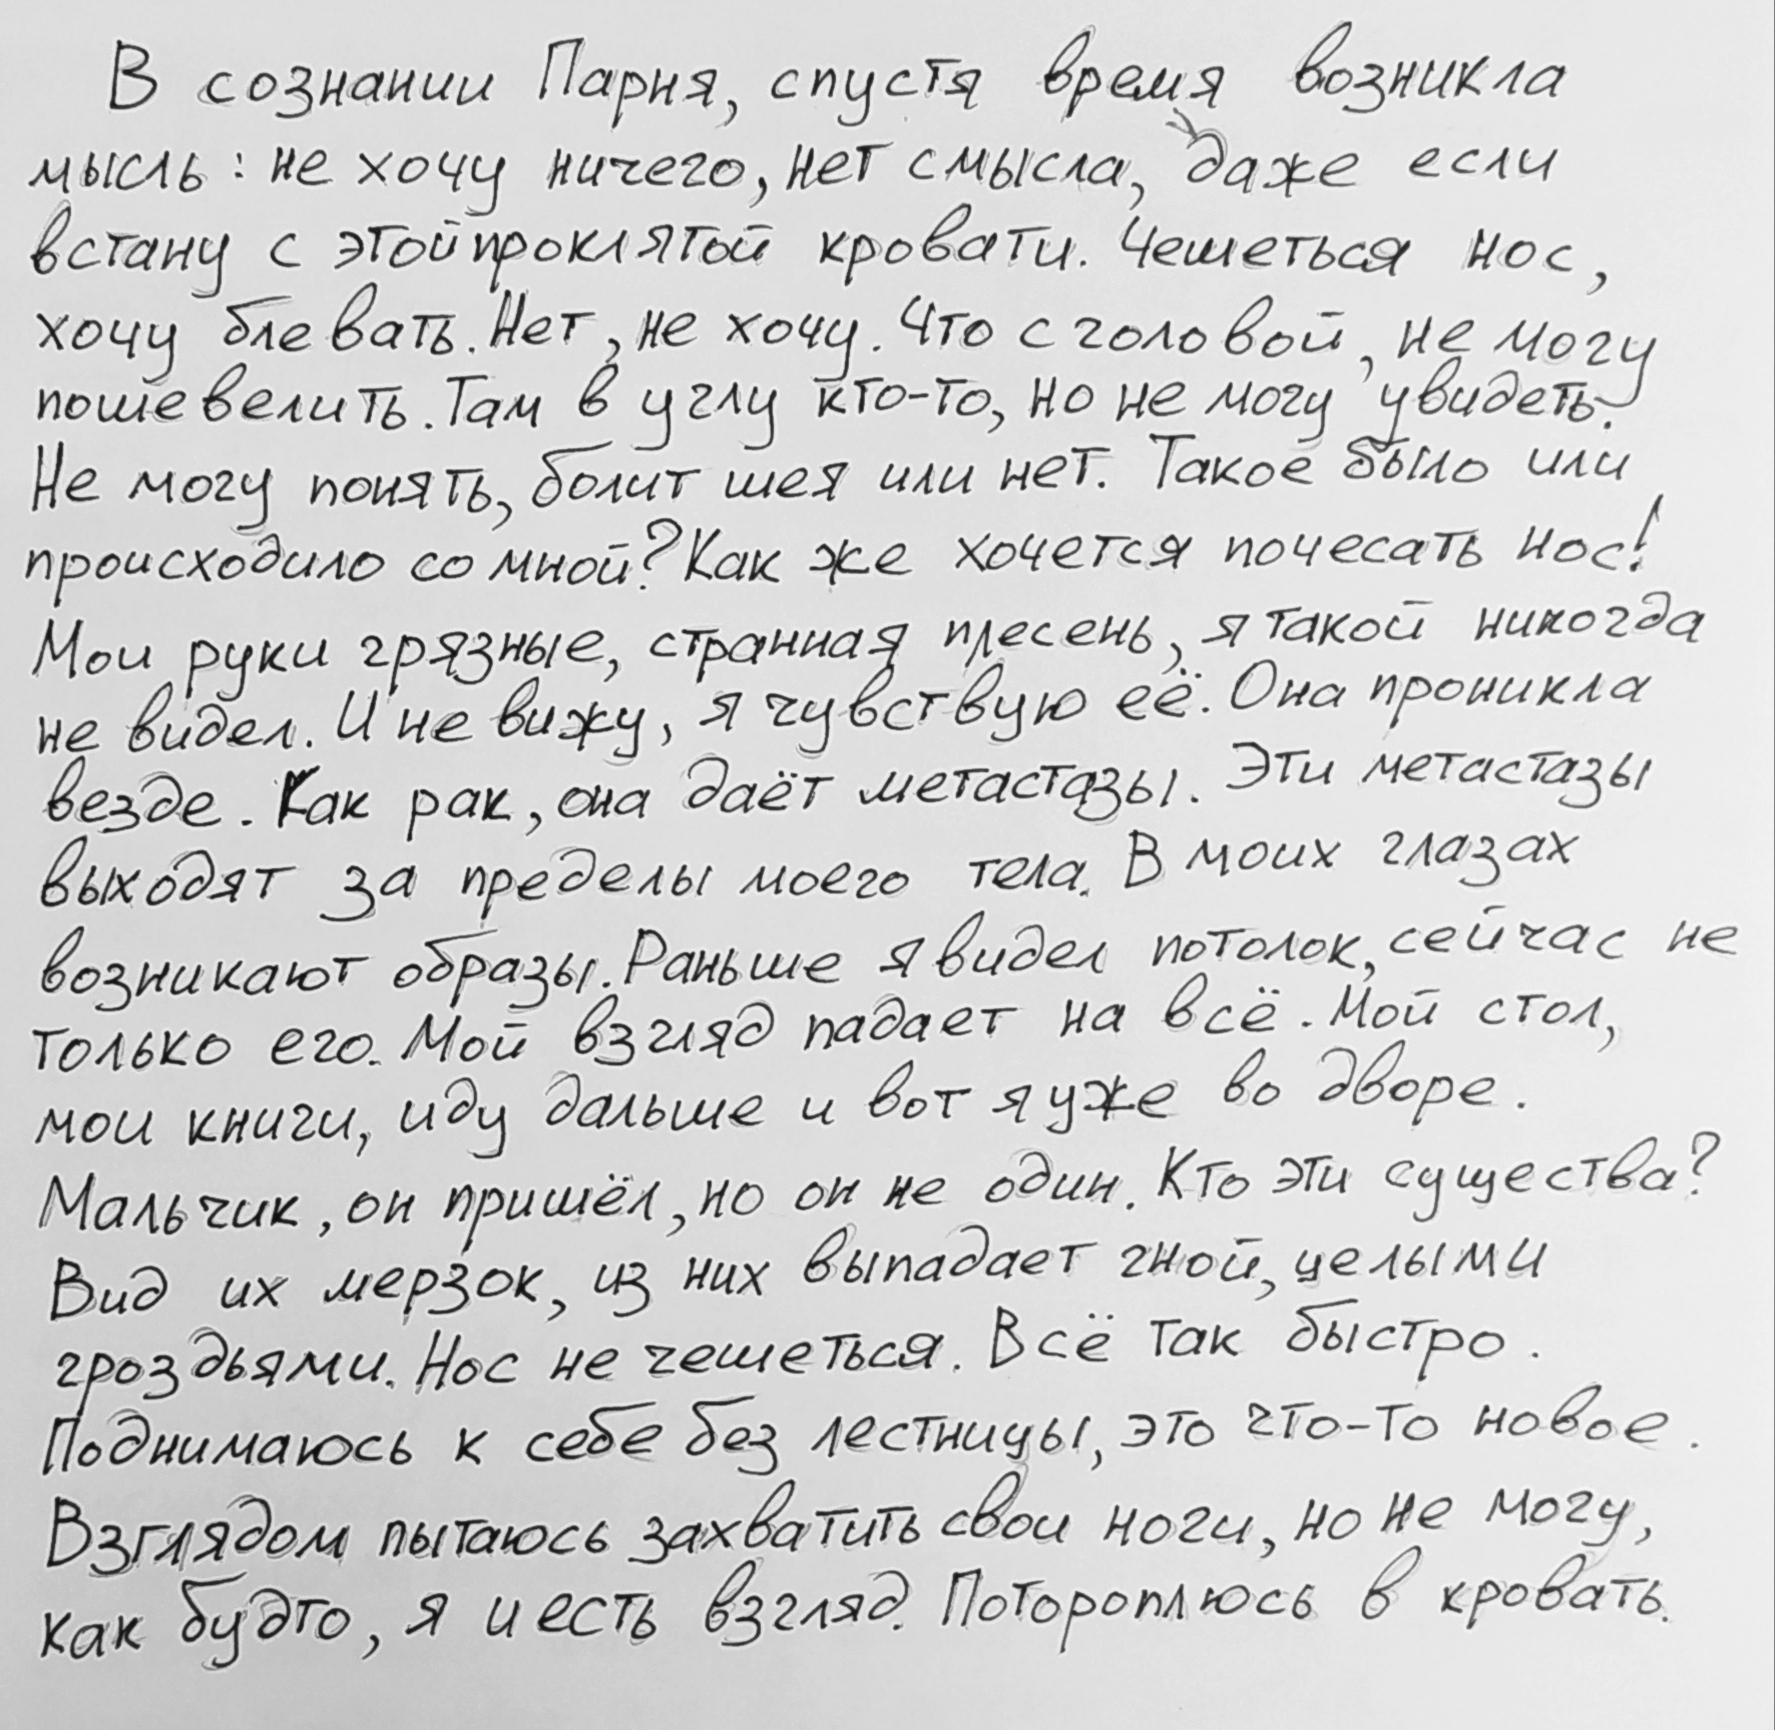 В сознании Парня, спустя время возникла
мысль: не хочу ничего, нет смысла, даже если
встану с этой проклятой кровати. Чешеться нос,
хочу блевать. Нет, не хочу. Что с головой, не могу
пошевелить. Там в углу кто-то, но не могу увидеть.
Не могу понять, болит шея или нет. Такое было или
происходило со мной? Как же хочется почесать нос!
Мои руки грязные, странная плесень, я такой никогда
не видел. И не вижу, я чувствую её. Она проникла
везде. Как рак, она даёт метастазы. Эти метастазы
выходят за пределы моего тела. В моих глазах
возникают образы. Раньше я видел потолок, сейчас не
только его. Мой взгляд падает на всё. Мой стол,
мои книги, иду дальше и вот я уже во дворе.
Мальчик, он пришёл, но он не один. Кто эти существа?
Вид их мерзок, из них выпадает гной, целыми
гроздьями. Нос не чешеться. Всё так быстро.
Поднимаюсь к себе без лестницы, это что-то новое.
Взглядом пытаюсь захватить свои ноги, но не могу,
как будто, я и есть взгляд. Потороплюсь в кровать.